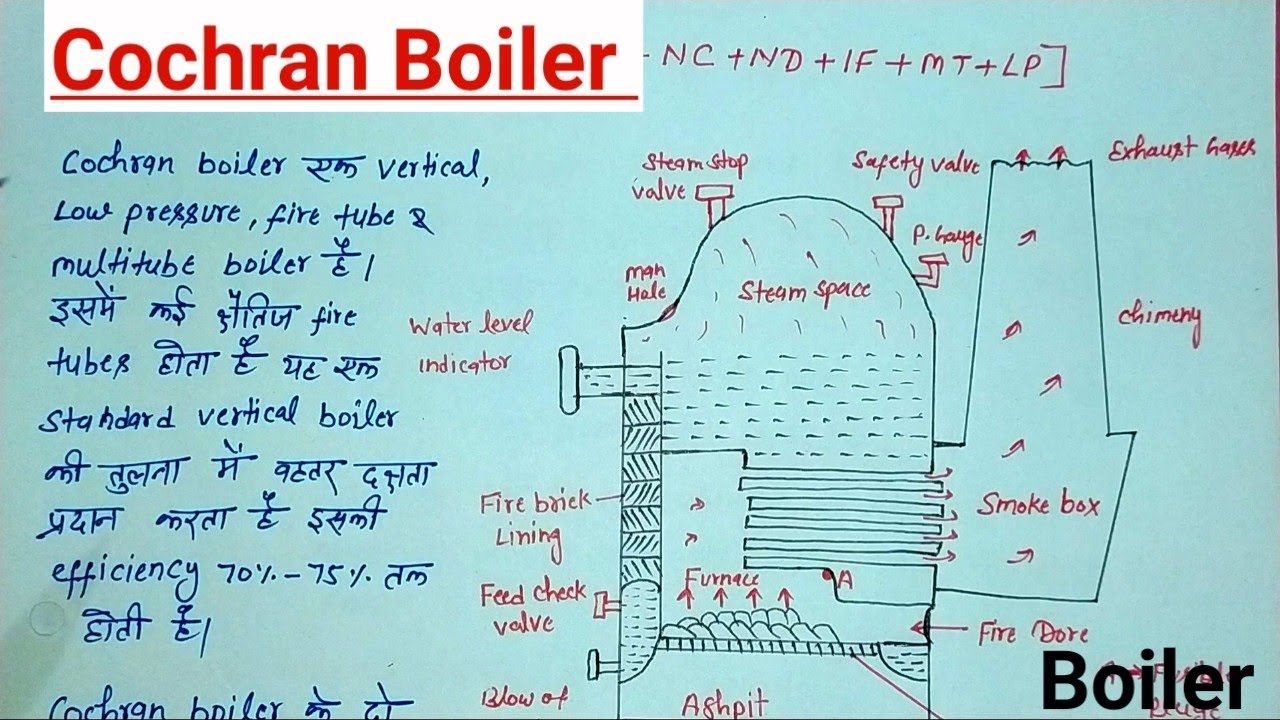 Cochran Boiler
- NC + ND + IF + MT + LP]
Cochran boiler एक vertical,
Low pressure, fire tube
multitube boiler है।
इसमें कई क्षैतिज fire
tubes होता है यह एक
Standard vertical boiler
की तुलना में वहतर दक्षता
प्रदान करता है इसकी
efficiency 70%-75% तक
होती है।
Cochran boiler के दो
Steam stop
valve
Safety valve
Exhaust Gases
P. Gauge
man
Hole
Steam space
Water level
indicator
Chimeny
Fire brick
Lining
Smoke box
Furnace
A
Feed check
valve
Fire Dore
Blow of
Ashpit
Boiler